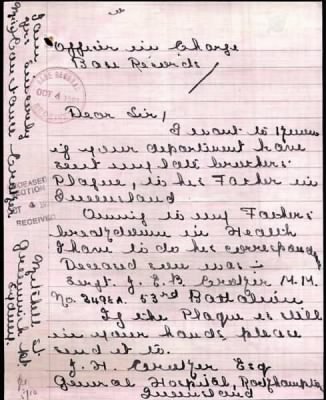 Officer in Charge
Base Records
OCT 4
Dear Sir,
I want to know
if your department have
sent my late brothers
Plaque, to his Father in
Queensland
Owing to my Fathers
breakdown in Health
I have to do his correspond
Deceased was
Sergt. J. E. B. Croizer M.M.
No. 3495A. 53rd Battalion
If the Plaque is still
in your hands please
send it to.
J. H. Croizer Esq
General Hospital, Rockhampton
Queensland
DECEASED
SECTION
OCT
RECEIVED
yours
Mitchell St
Greenwich
Sydney